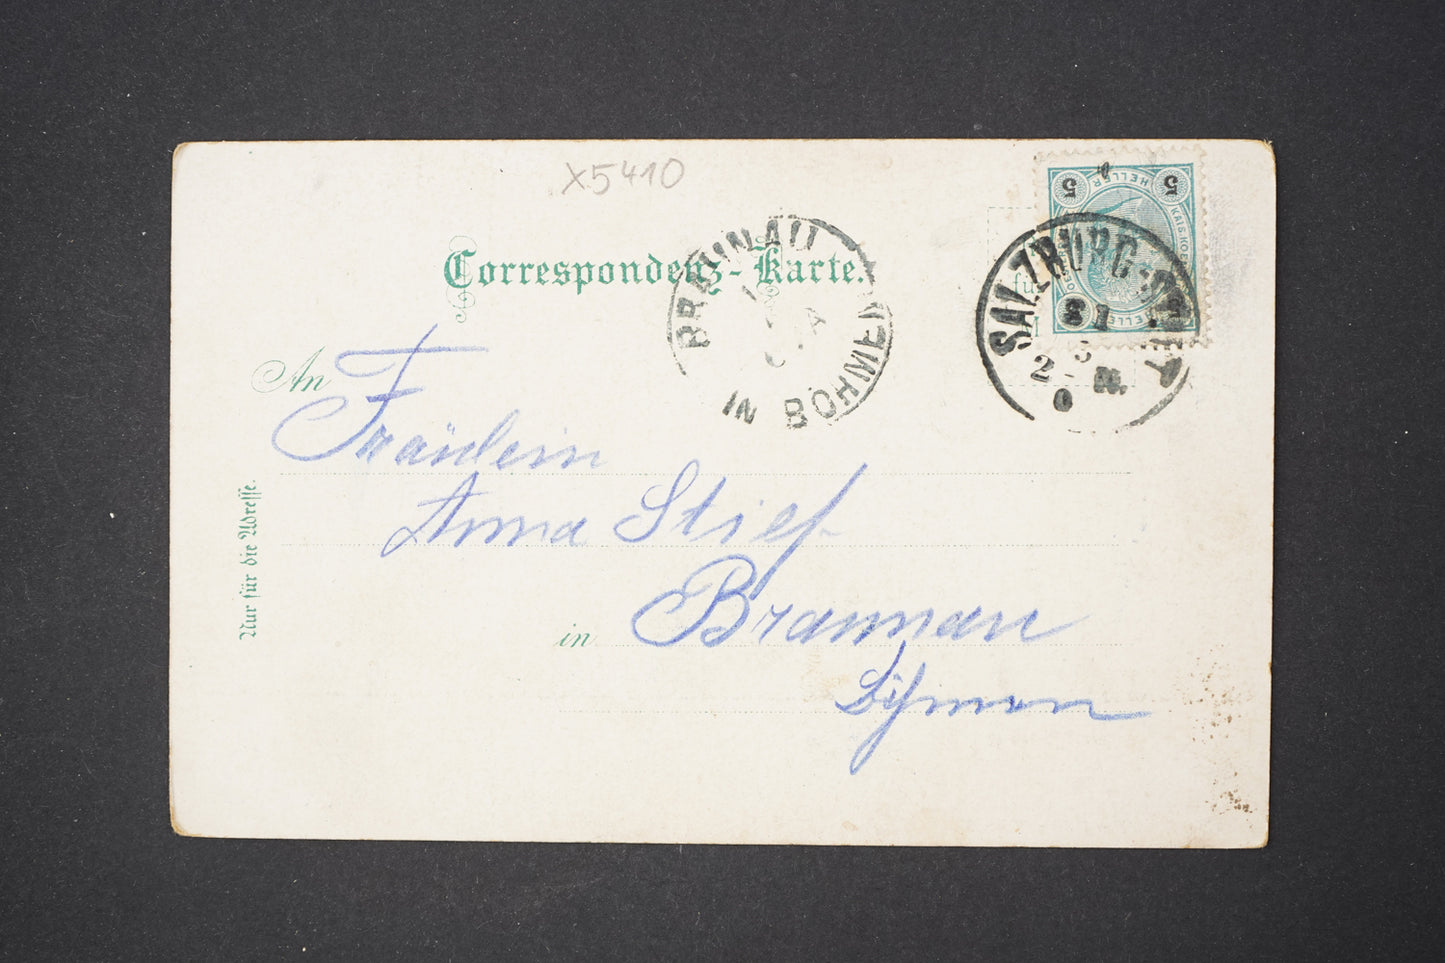 X5410
Correspondenz-Karte.
5 HELLER 5
BRAUNAU
IN BÖHMEN
SALZBURG-STADT
31
2
An
Fräulein
Anna Stief
in Braunau
Böhmen
Nur für die Adresse.